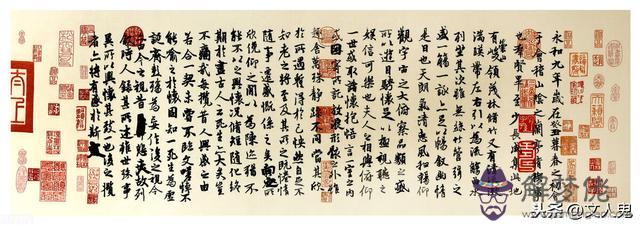 永和九年歲在癸丑暮春之初會
于會稽山陰之蘭亭脩稧事
也群賢畢至少長咸集此地
有崇山峻領茂林脩竹又有清流激
湍暎帶左右引以為流觴曲水
列坐其次雖無絲竹管弦之
盛一觴一詠亦足以暢敘幽情
是日也天朗氣清惠風和暢仰
觀宇宙之大俯察品類之盛
所以遊目騁懷足以極視聽之
娛信可樂也夫人之相與俯仰
一世或取諸懷抱悟言一室之內
或因寄所託放浪形骸之外雖
趣舍萬殊靜躁不同當其欣
於所遇蹔得於己怏然自足不
知老之將至及其所之既惓情
隨事遷感慨係之矣向之所
欣俛仰之間以為陳迹猶不
能不以之興懷況脩短隨化終
期於盡古人云死生亦大矣豈
不痛哉每攬昔人興感之由
若合一契未嘗不臨文嗟悼不
能喻之於懷固知一死生為虛
誕齊彭殤為妄作後之視今
亦由今之視昔悲夫故列
敘時人錄其所述雖世殊事
異所以興懷其致一也後之攬
者亦將有感於斯文
头条@文人鬼